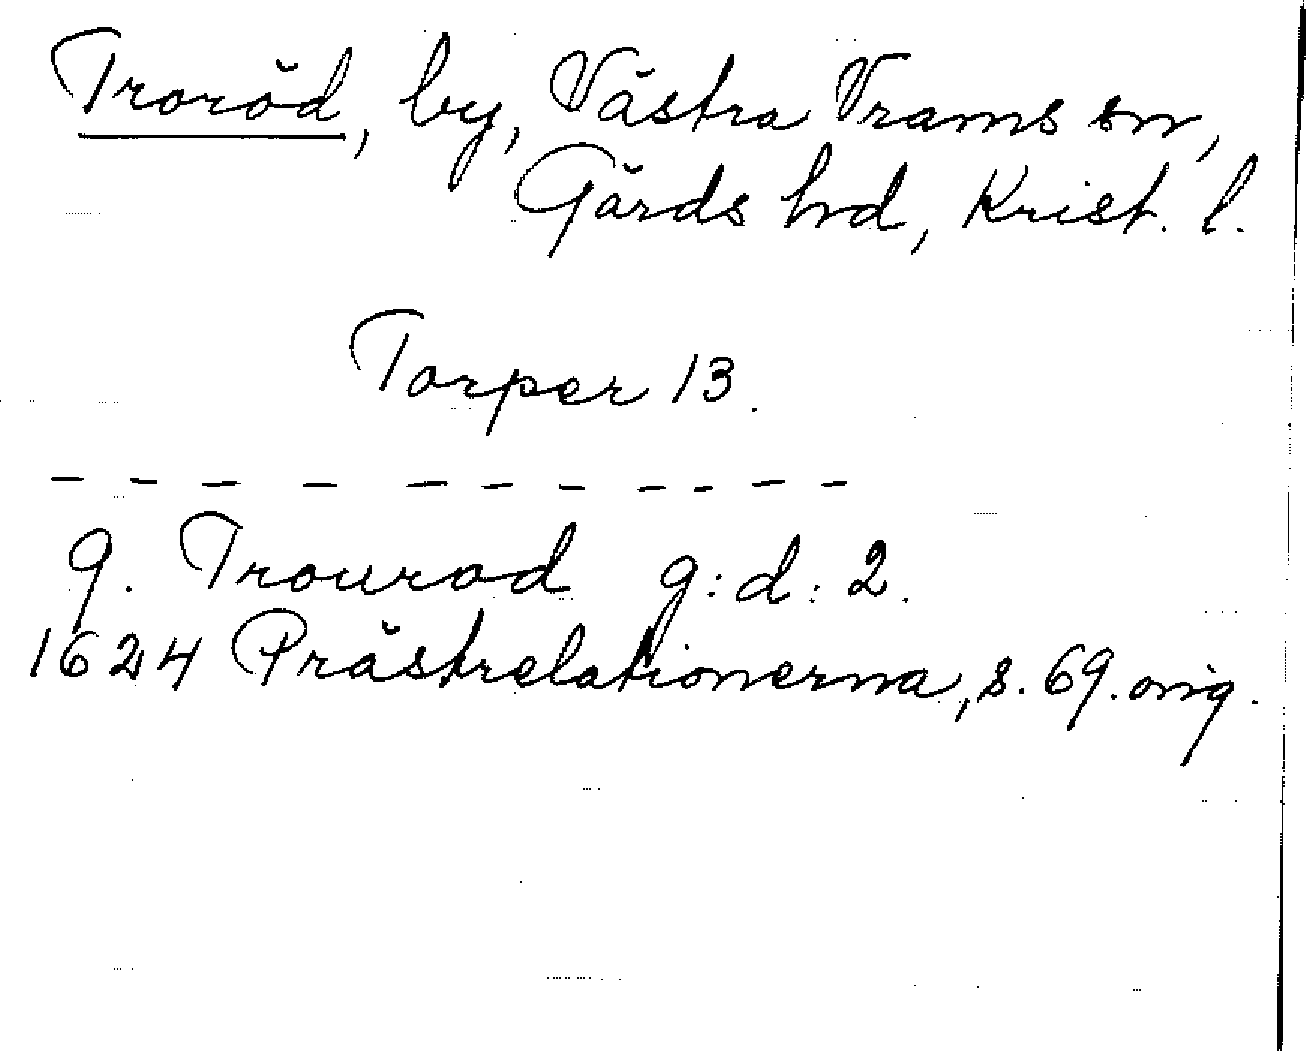 Troröd, by, Västra Vrams sn,
Gärds hd, Krist. l.
Torper 13.
- - - - - - - - - - -
9. Trourod g:d: 2.
1624 Prästrelationerna, s. 69. orig.